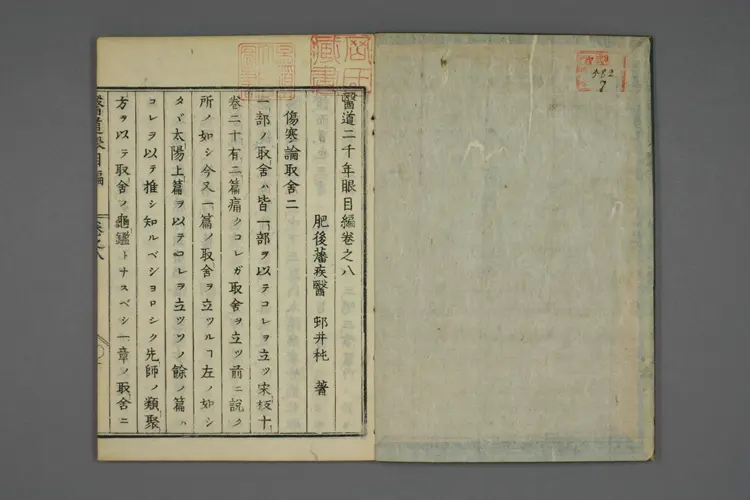 醫道二千年眼目編卷之八
肥後藩疾醫 邨井杶 著
傷寒論取舍二
一部ノ取舍ハ皆一部ヲ以テコレヲ立ツ宋板十
卷二十有二篇痛クコレガ取舍ヲ立ツ前ニ説ク
所ノ如シ今又一篇ノ取舍ヲ立ツルヿ左ノ如シ
タヾ太陽上篇ヲ以テコレヲ立ツソノ餘ノ篇ハ
コレヲ以テ推シ知ルベシヨロシク先師ノ類聚
方ヲ以テ取舍ノ龜鑑トナスベシ一章ノ取舍ニ
醫道眼目編
卷之八
482
7